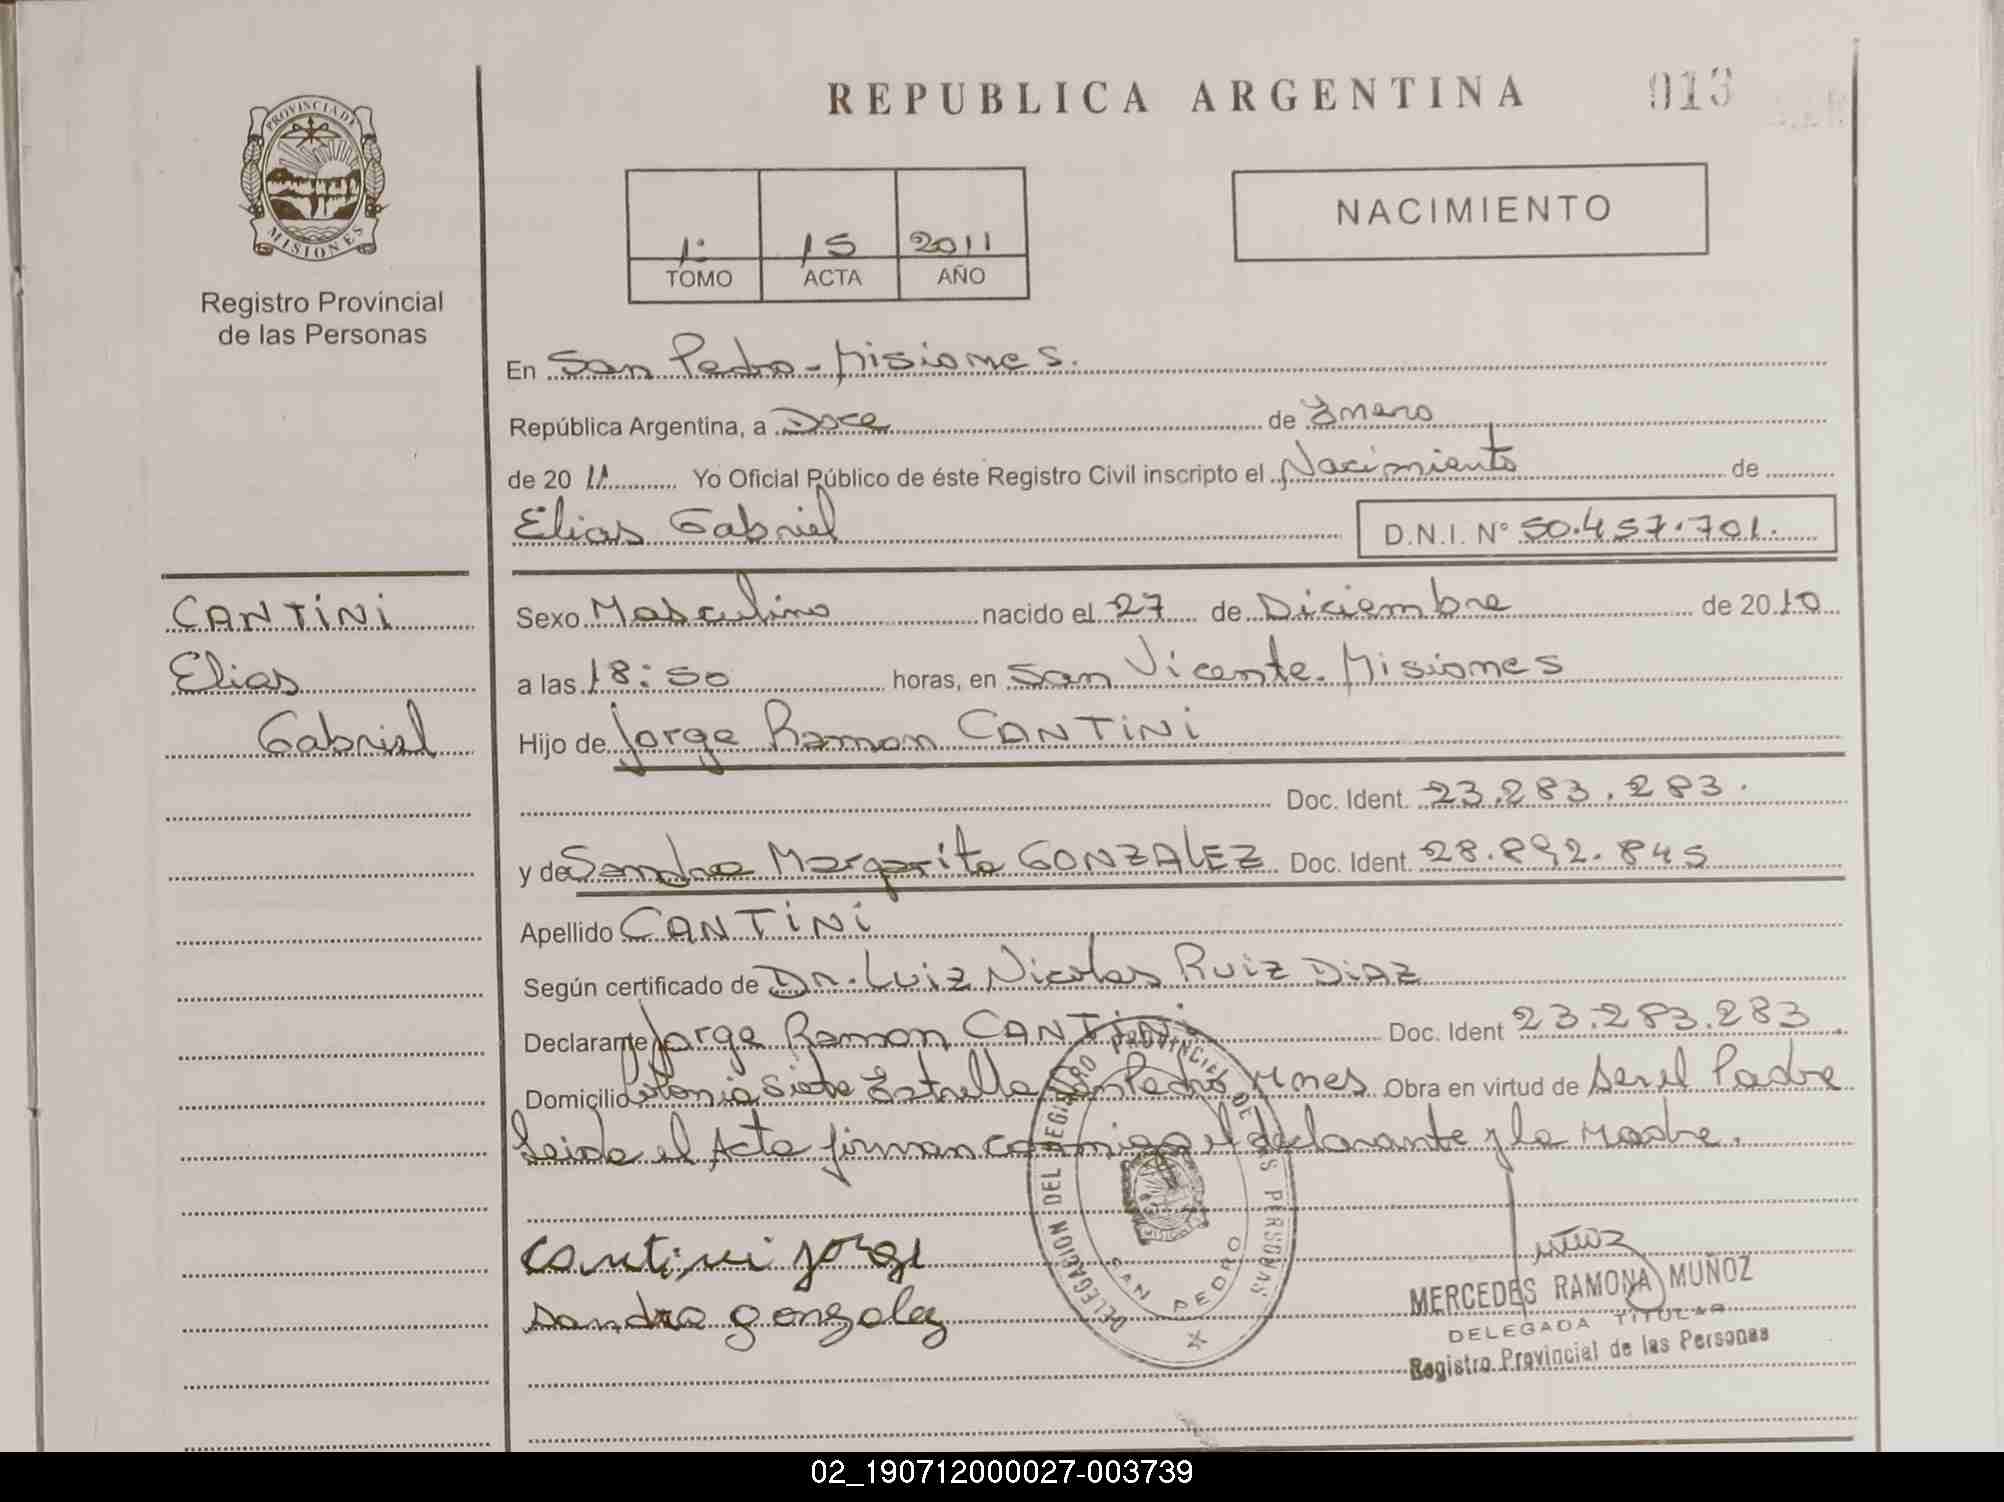 REPUBLICA ARGENTINA
013
PROVINCIA DE
MISIONES
Registro Provincial
de las Personas
1º 15 2011
TOMO ACTA AÑO
NACIMIENTO
En San Pedro - Misiones.
República Argentina, a Doce de Enero
de 2011 Yo Oficial Público de éste Registro Civil inscripto el Nacimiento de
Elias Gabriel D.N.I. Nº 50.457.701.
CANTiNi
Elias
Gabriel
Sexo Masculino nacido el 27 de Diciembre de 2010
a las 18:50 horas, en San Vicente. Misiones
Hijo de Jorge Ramon CANTiNi
Doc. Ident. 23.283.283.
y de Sandra Margarita GONZALEZ Doc. Ident. 28.892.845
Apellido CANTiNi
Según certificado de Dr. Luiz Nicolas Ruiz DiAZ
Declarante Jorge Ramon CANTiNi Doc. Ident 23.283.283
Domicilio Colonia Siete Estrella San Pedro Mnes Obra en virtud de ser el Padre
Leida el Acta firman conmigo el declarante y la Madre.
DELEGACION DEL REGISTRO PROVINCIAL DE LAS PERSONAS
MISIONES
SAN PEDRO
cantini jorge
sandra gonzalez
Muñoz
MERCEDES RAMONA MUÑOZ
DELEGADA TITULAR
Registro Provincial de las Personas
02_190712000027-003739